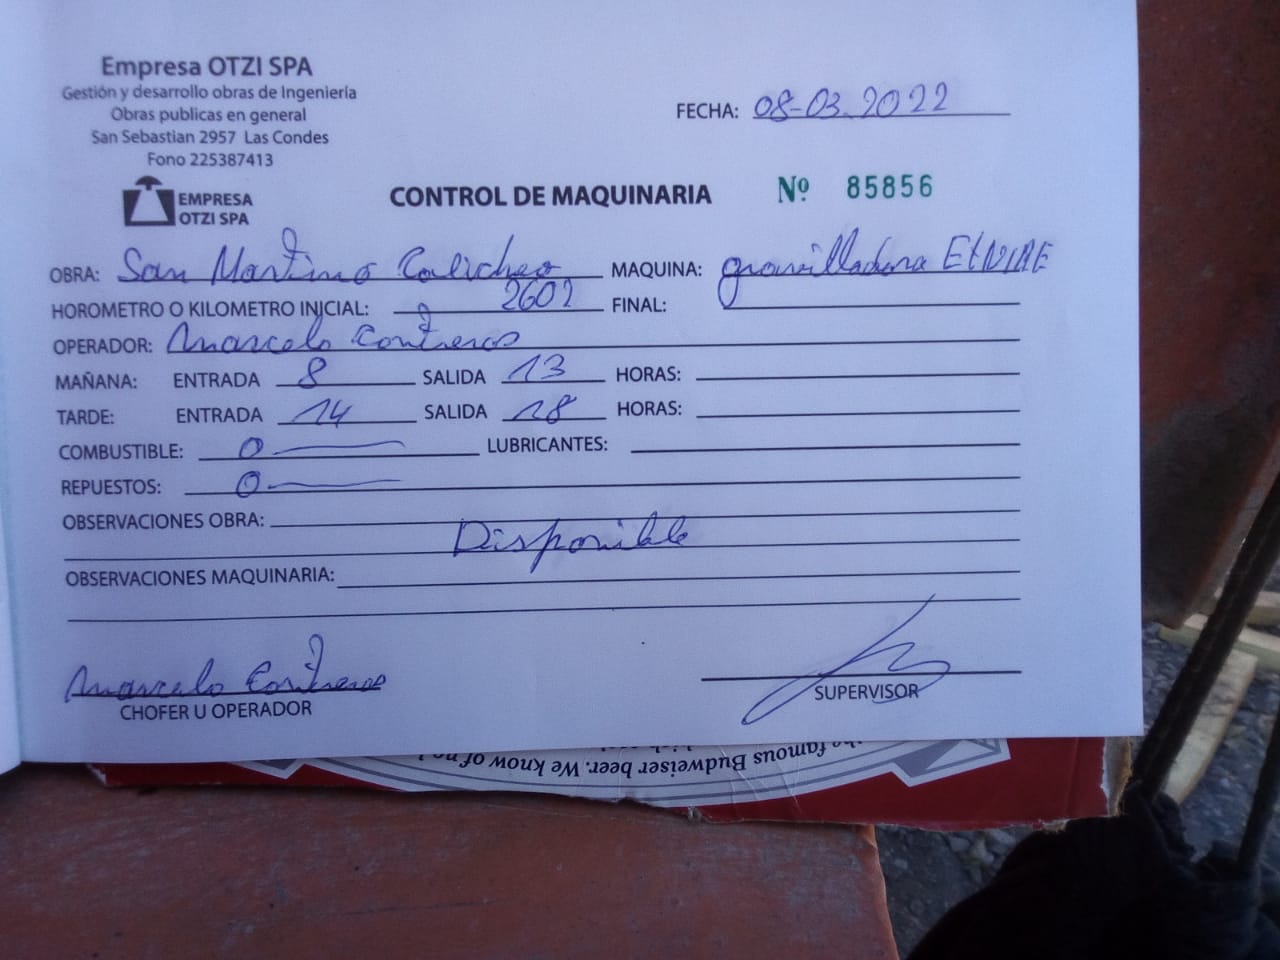 Empresa OTZI SPA
Gestión y desarrollo obras de Ingeniería
Obras publicas en general
San Sebastian 2957 Las Condes
Fono 225387413
EMPRESA
OTZI SPA
FECHA: 08-03.2022
CONTROL DE MAQUINARIA Nº 85856
OBRA: San Martino Calicheo MAQUINA: gravilladora EtNIRE
HOROMETRO O KILOMETRO INICIAL: 2602 FINAL:
OPERADOR: Marcelo Contreros
MAÑANA: ENTRADA 8 SALIDA 13 HORAS:
TARDE: ENTRADA 14 SALIDA 18 HORAS:
COMBUSTIBLE: 0 LUBRICANTES:
REPUESTOS: 0
OBSERVACIONES OBRA:
Disponible
OBSERVACIONES MAQUINARIA:
Marcelo Contreros
CHOFER U OPERADOR
SUPERVISOR
the famous Budweiser beer. We know of no